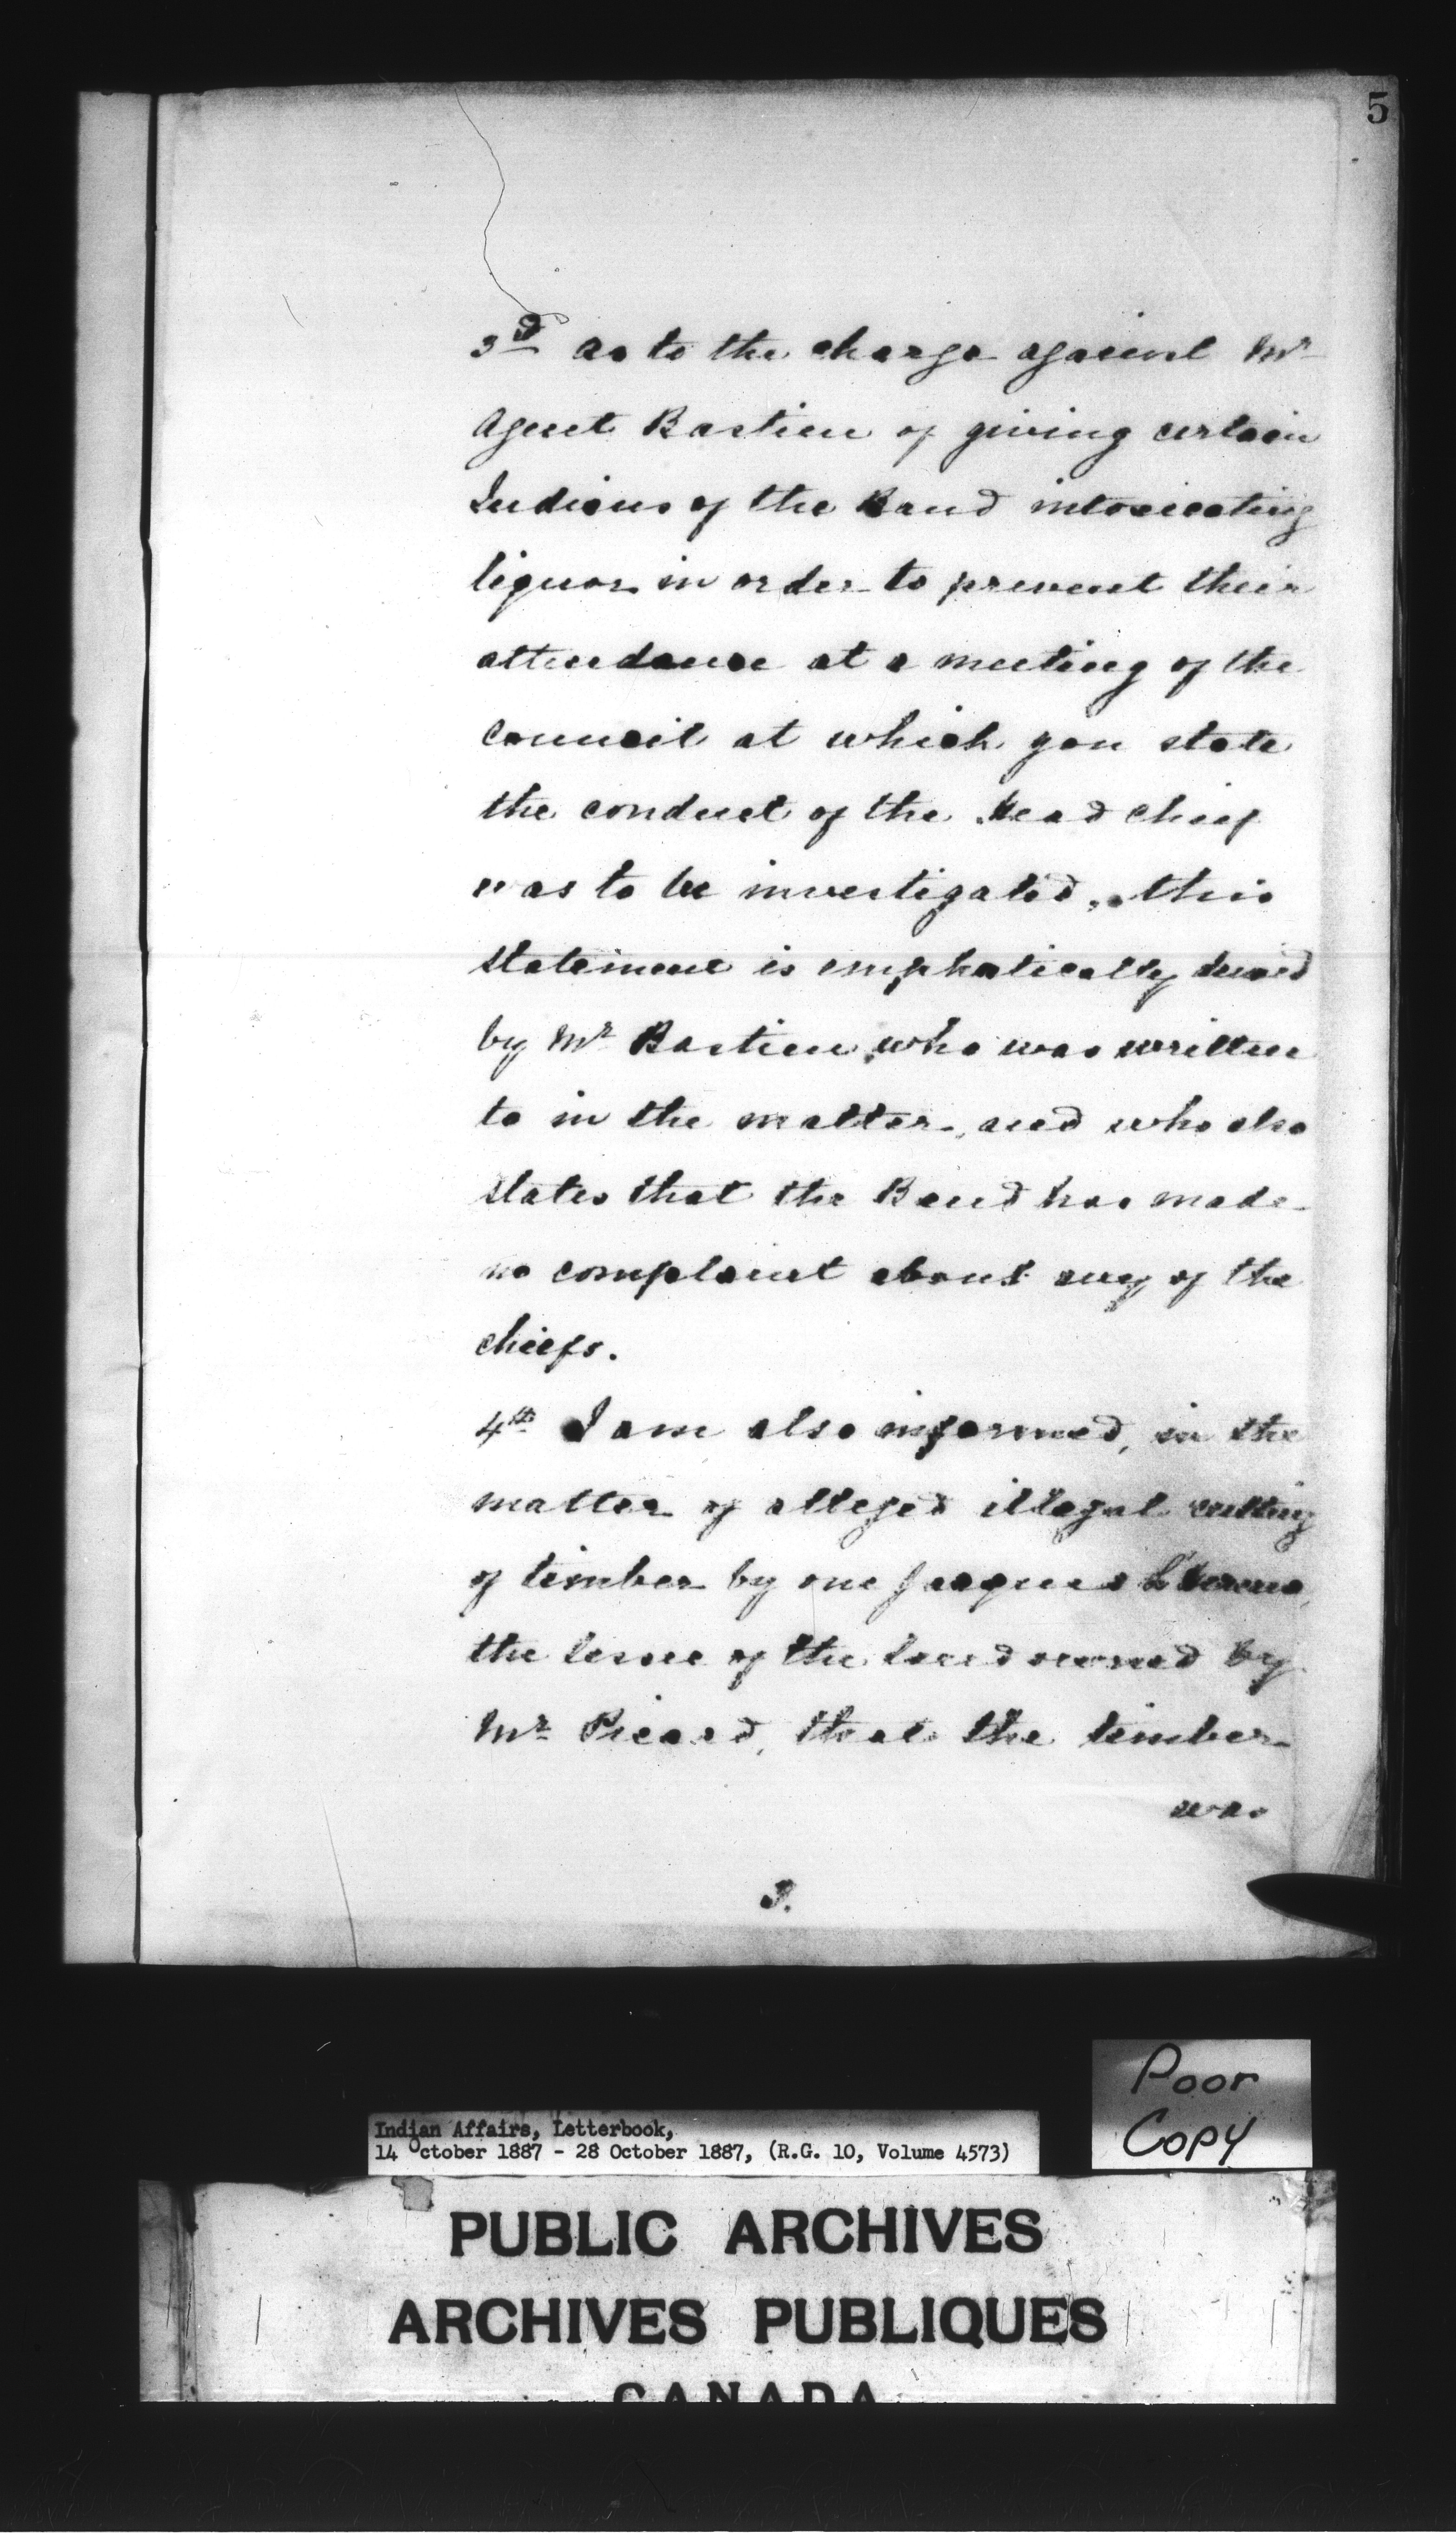 5
3rd as to the charge against Mr
Agent Bastien of giving certain
Indians of the Band intoxicating
liquor in order to prevent their
attendance at a meeting of the
Council at which you state
the conduct of the Head Chief
was to be investigated, this
statement is emphatically denied
by Mr Bastien, who was written
to in the matter, and who also
states that the Band has made
no complaint about any of the
chiefs.
4th I am also informed, in the
matter of alleged illegal cutting
of timber by one Jacques
the lessee of the land owned by
Mr Picard, that the timber
was
3.
Poor
Copy
Indian Affairs, Letterbook,
14 October 1887 - 28 October 1887, (R.G. 10, Volume 4573)
PUBLIC ARCHIVES
ARCHIVES PUBLIQUES
CANADA